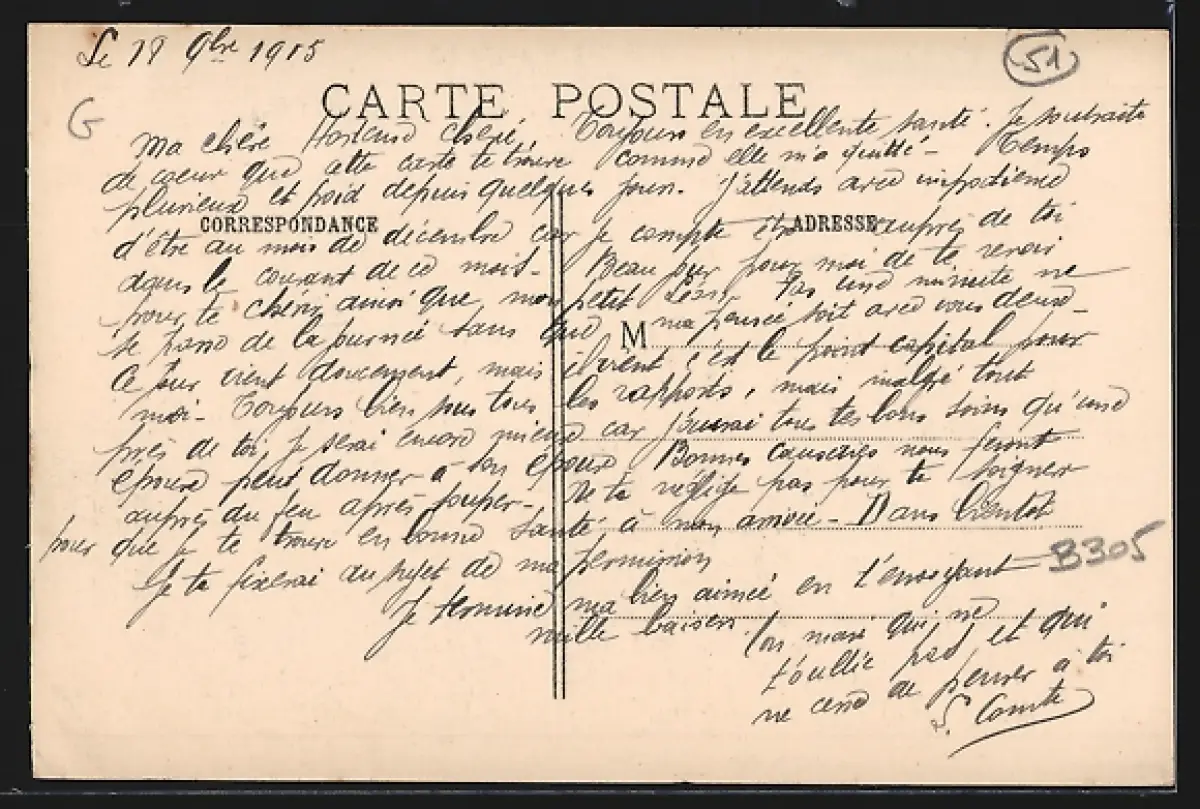 Le 18 9bre 1915
51
G
CARTE POSTALE
Ma chère Hortense chérie, Toujours en excellente santé. Je souhaite
de coeur que cette carte te trouve comme elle m'a quitté - Temps
pluvieux et froid depuis quelques jours. J'attends avec impatience
CORRESPONDANCE
ADRESSE
d'être au mois de décembre car je compte être auprès de toi
dans le courant de ce mois - Beau jour pour moi de te revoir
pour te chérir ainsi que mon petit Léon. Pas une minute ne
se passe de la journée sans que ma pensée soit avec vous deux -
M
Ce jour vient doucement, mais il vient c'est le point capital pour
moi - Toujours bien sous tous les rapports, mais malgré tout
près de toi, je serai encore mieux car j'aurai tous tes bons soins qu'une
épouse peut donner à son époux Bonnes causeries nous feront
auprès du feu après souper - Ne te néglige pas pour te soigner
pour que je te trouve en bonne santé à mon arrivée - Dans bientôt
Je te fixerai au sujet de ma permission
B305
Je termine ma bien aimée en t'envoyant
mille baisers. Ton mari qui ne
t'oublie pas et qui
ne cesse de penser à toi
L. Comte